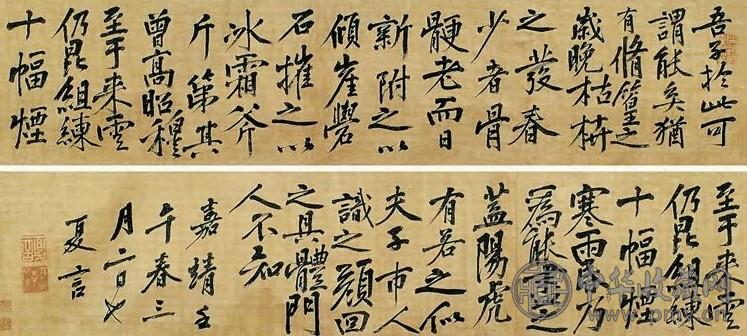 吾子於此可
謂能矣猶
有脩篁之
歲晚枯枿
之發春
少者骨
骾老而日
新附之以
傾崖礐
石摧之以
冰霜斧
斤第其
曾高昭穆
至于來雲
仍昆組練
十幅煙
至于來雲
仍昆組練
十幅煙
寒雨
為能
蓋陽虎
有若之似
夫子市人
識之顏回
之具體門
人不知
嘉靖壬
午春三
月二日也
夏言
中华收藏网